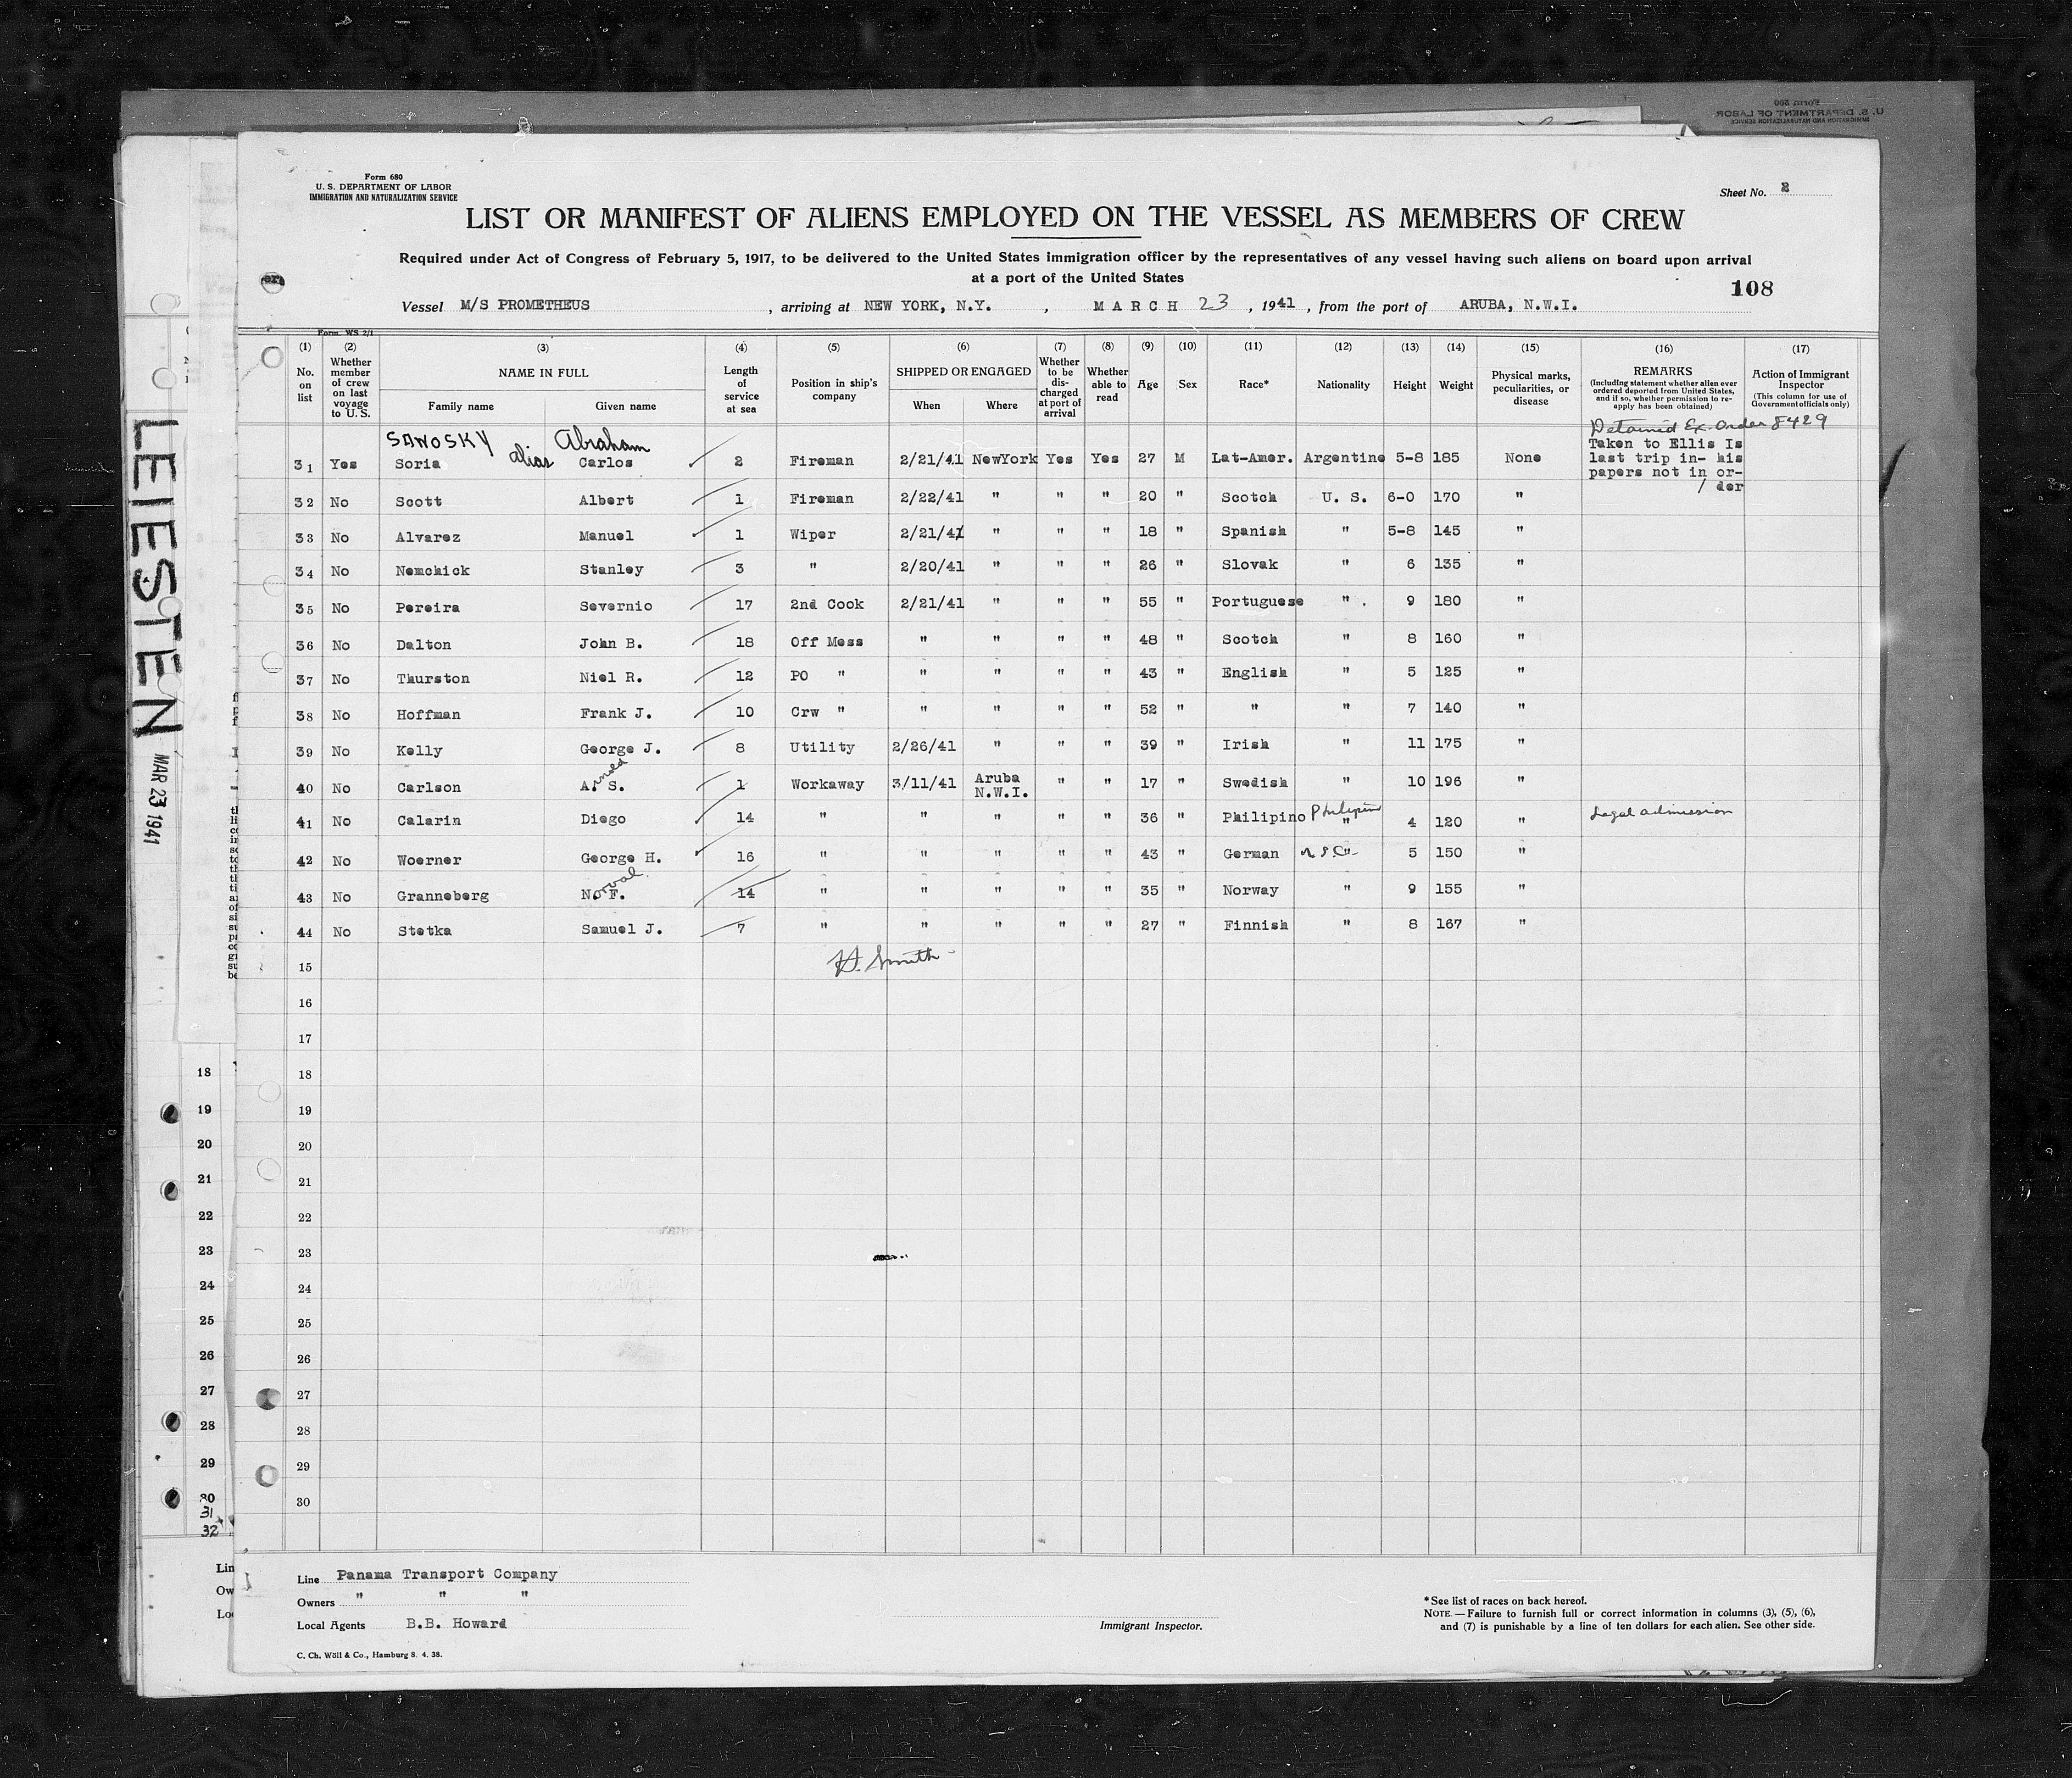 Form 680
U. S. DEPARTMENT OF LABOR
IMMIGRATION AND NATURALIZATION SERVICE
Sheet No. 2
LIST OR MANIFEST OF ALIENS EMPLOYED ON THE VESSEL AS MEMBERS OF CREW
Required under Act of Congress of February 5, 1917, to be delivered to the United States immigration officer by the representatives of any vessel having such aliens on board upon arrival
at a port of the United States
108
Vessel M/S PROMETHEUS , arriving at NEW YORK, N.Y. , MARCH 23 , 1941 , from the port of ARUBA, N.W.I.
Form WS 2/1
(1) (2) (3) (4) (5) (6) (7) (8) (9) (10) (11) (12) (13) (14) (15) (16) (17)
No. on list
Whether member of crew on last voyage to U. S.
NAME IN FULL
Family name Given name
Length of service at sea
Position in ship's company
SHIPPED OR ENGAGED
When Where
Whether to be discharged at port of arrival
Whether able to read
Age
Sex
Race*
Nationality
Height
Weight
Physical marks, peculiarities, or disease
REMARKS
(Including statement whether alien ever ordered deported from United States, and if so, whether permission to reapply has been obtained)
Action of Immigrant Inspector
(This column for use of Government officials only)
SAWOSKY alias Abraham
Detained Ex. Order 8429
31 Yes Soria Carlos 2 Fireman 2/21/41 NewYork Yes Yes 27 M Lat-Amer. Argentine 5-8 185 None
Taken to Ellis Is
last trip in- his
papers not in or-
/ der
32 No Scott Albert 1 Fireman 2/22/41 " " " 20 " Scotch U. S. 6-0 170 "
33 No Alvarez Manuel 1 Wiper 2/21/41 " " " 18 " Spanish " 5-8 145 "
34 No Nemchick Stanley 3 " 2/20/41 " " " 26 " Slovak " 6 135 "
35 No Pereira Severnio 17 2nd Cook 2/21/41 " " " 55 " Portuguese " 9 180 "
36 No Dalton John B. 18 Off Mess " " " " 48 " Scotch " 8 160 "
37 No Thurston Niel R. 12 PO " " " " " 43 " English " 5 125 "
38 No Hoffman Frank J. 10 Crw " " " " " 52 " " " 7 140 "
39 No Kelly George J. 8 Utility 2/26/41 " " " 39 " Irish " 11 175 "
Arnold
40 No Carlson A. S. 1 Workaway 3/11/41 Aruba N.W.I. " " 17 " Swedish " 10 196 "
41 No Calarin Diego 14 " " " " " 36 " Philipino Philipine " 4 120 " Legal admission
42 No Woerner George H. 16 " " " " " 43 " German U.S.C. " 5 150 "
Norval
43 No Granneberg N. F. 14 " " " " " 35 " Norway " 9 155 "
44 No Stetka Samuel J. 7 " " " " " 27 " Finnish " 8 167 "
H. Smith
15
16
17
18
19
20
21
22
23
24
25
26
27
28
29
30
Line Panama Transport Company
Owners " " "
Local Agents B.B. Howard
C. Ch. Wöll & Co., Hamburg 8. 4. 38.
Immigrant Inspector.
*See list of races on back hereof.
NOTE.—Failure to furnish full or correct information in columns (3), (5), (6),
and (7) is punishable by a line of ten dollars for each alien. See other side.
LEIESTEN
MAR 23 1941
18
19
20
21
22
23
24
25
26
27
28
29
30
31
32
Lin
Ow
Lo
Form 500
U. S. DEPARTMENT OF LABOR
IMMIGRATION AND NATURALIZATION SERVICE